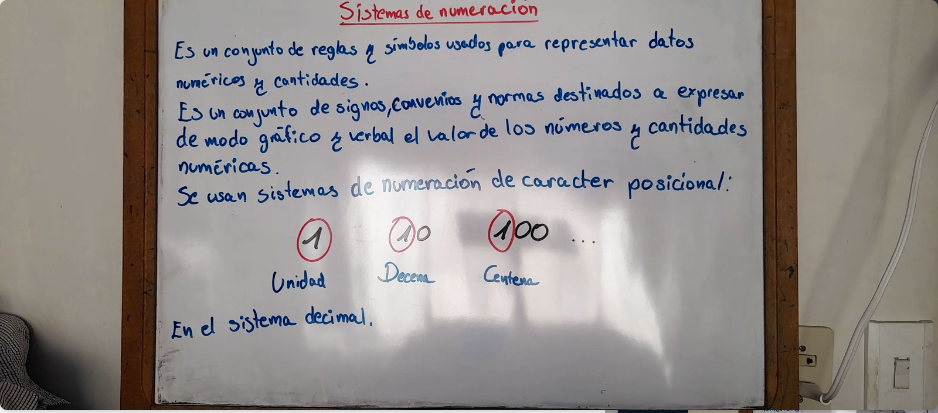 Sistemas de numeración
Es un conjunto de reglas y símbolos usados para representar datos
numéricos y cantidades.
Es un conjunto de signos, convenios y normas destinados a expresar
de modo gráfico y verbal el valor de los números y cantidades
numéricas.
Se usan sistemas de numeración de caracter posicional:
1 10 100 ...
Unidad Decena Centena
En el sistema decimal.